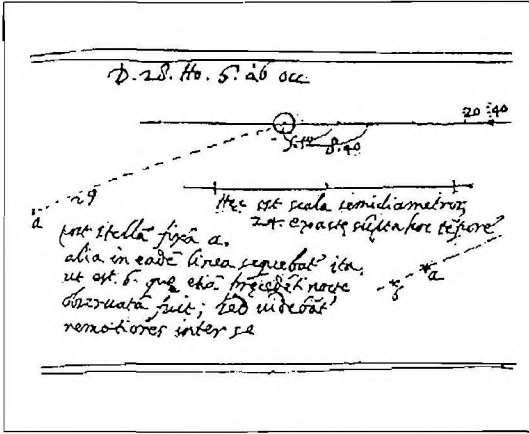 D. 28. Ho. 6. ab occ.
20.40
5.12 8.40
29
a
Hec est scala semidiametroru
24. exacte sūpta hoc tēpore
post stellā fixā a.
alia in eadē linea sequebat' ita,
ut est b. que etiā precedēti nocte
observata fuit; sed videbāt'
remotiores inter se
b a